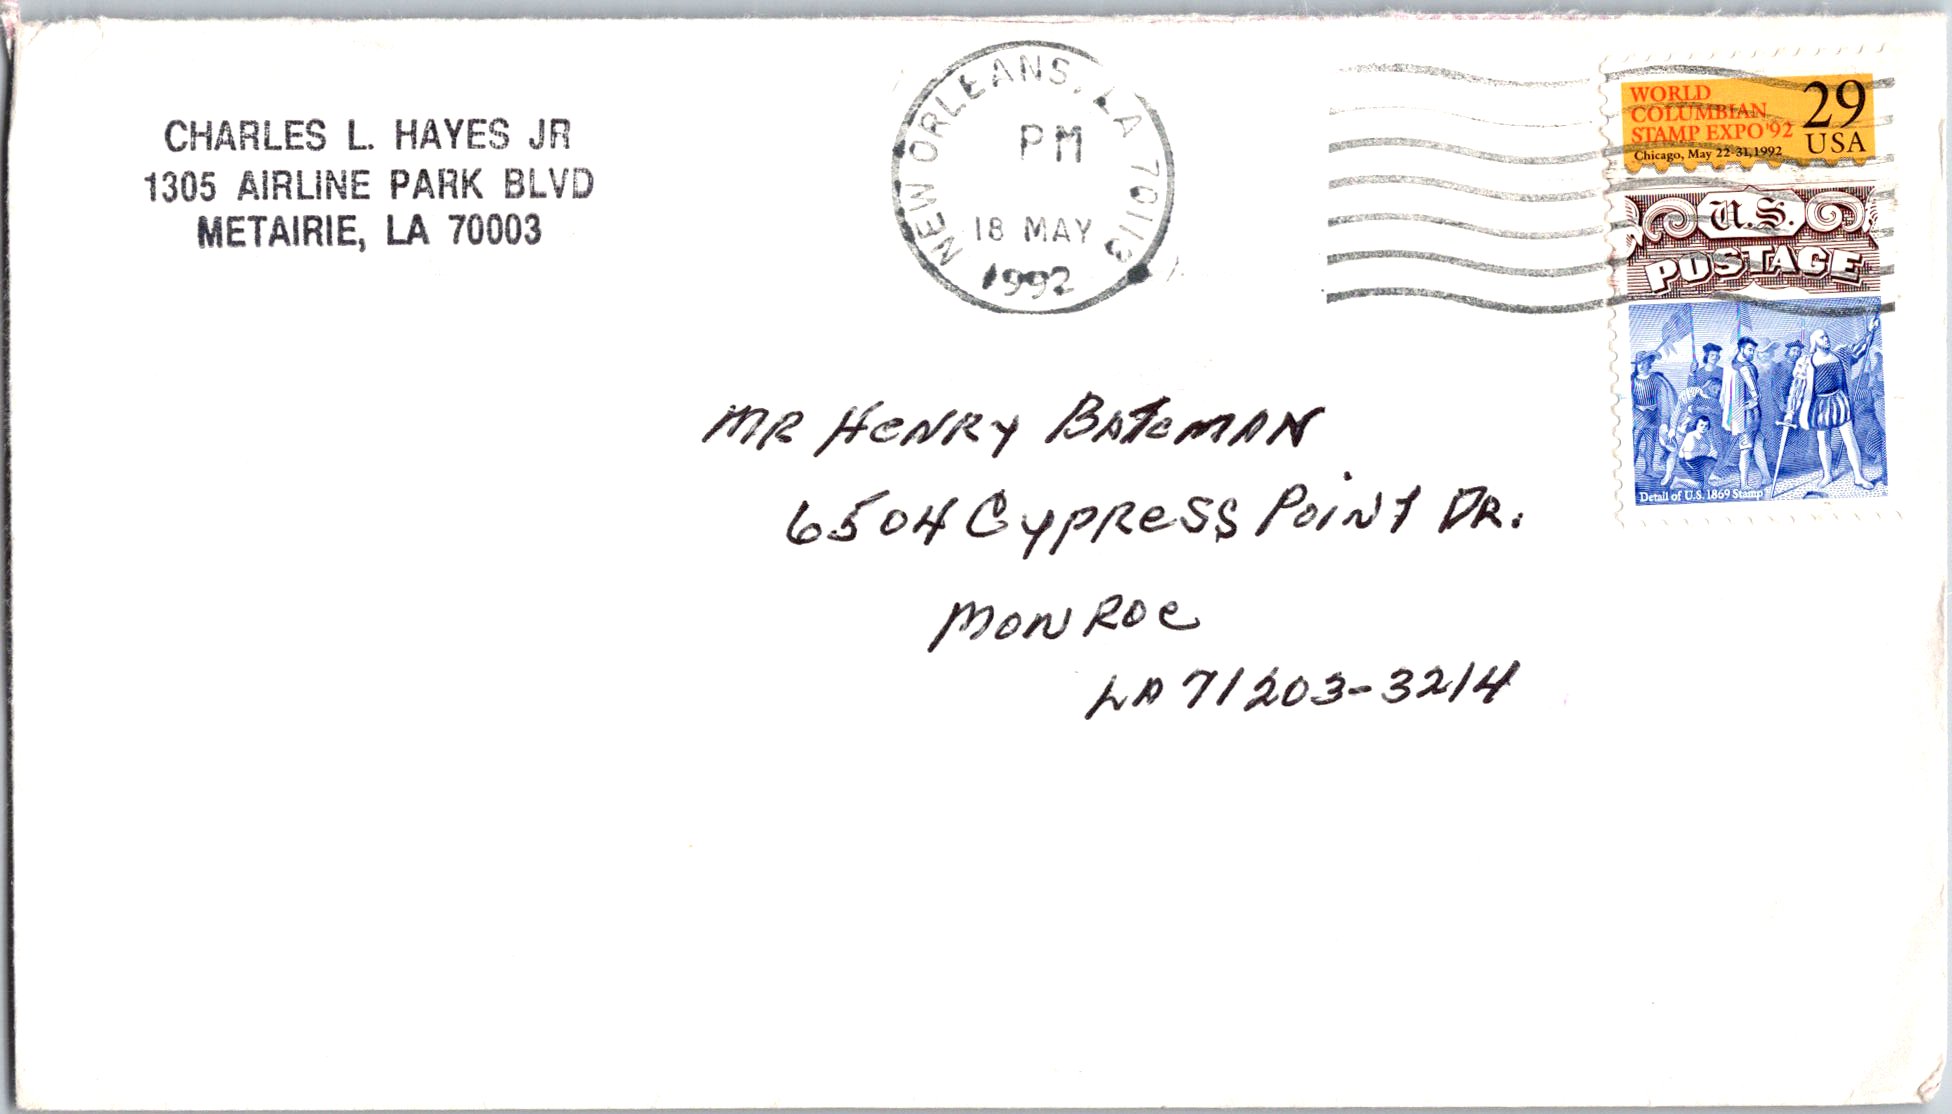 CHARLES L. HAYES JR
1305 AIRLINE PARK BLVD
METAIRIE, LA 70003
NEW ORLEANS, LA 70113
PM
18 MAY
1992
WORLD
COLUMBIAN
STAMP EXPO '92
Chicago, May 22-31, 1992
29
USA
U.S.
POSTAGE
Detail of U.S. 1869 Stamp
MR HeNRY BAteMAN
6504 CypReSS PoiNt DR.
MoNRoe
LA 71203-3214